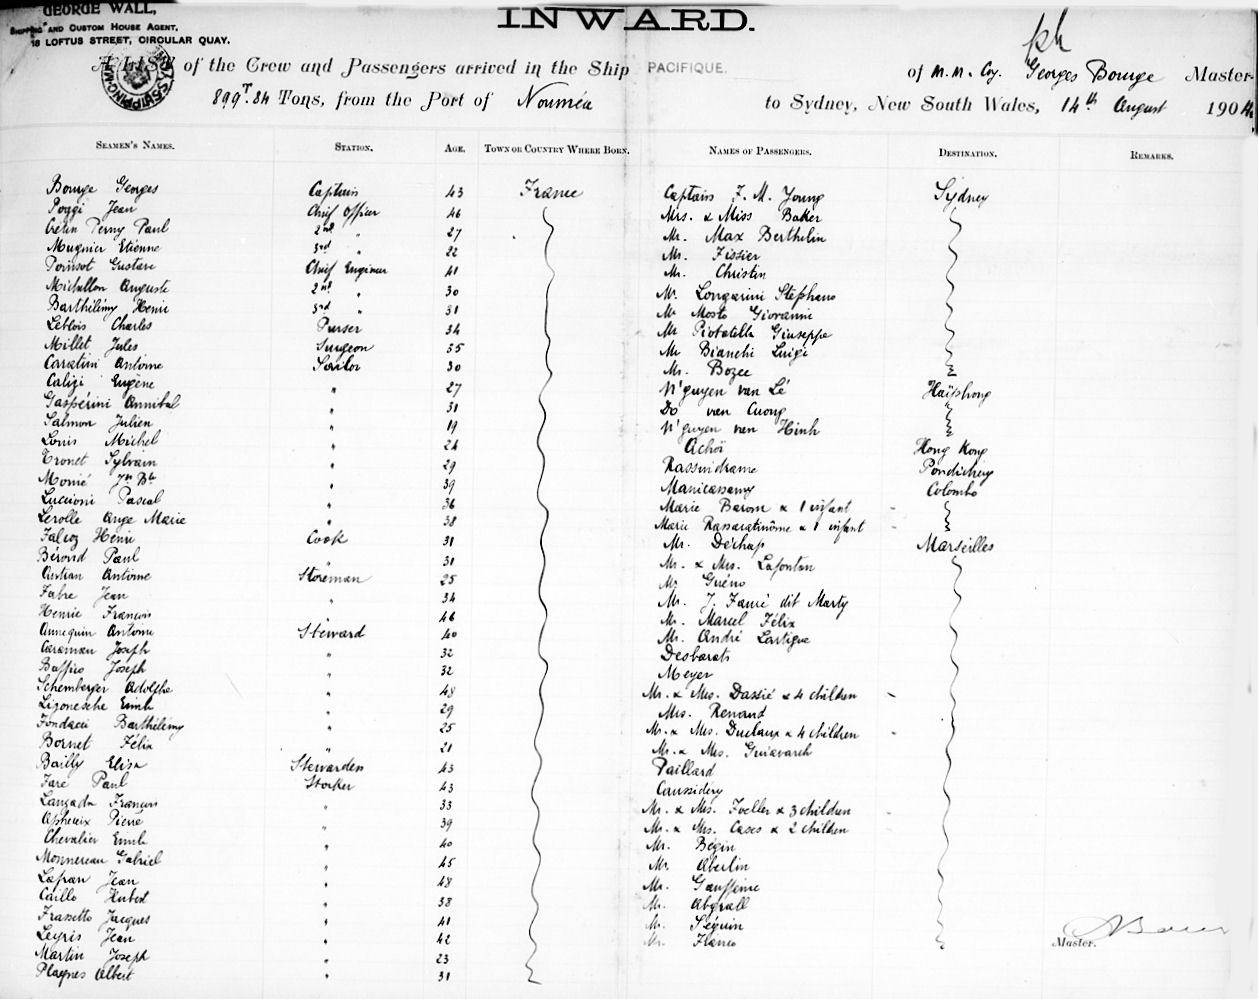 GEORGE WALL,
SHIPPING AND CUSTOM HOUSE AGENT,
18 LOFTUS STREET, CIRCULAR QUAY.
INWARD.
A LIST of the Crew and Passengers arrived in the Ship PACIFIQUE. of M.M. Coy. Georges Bourge Master
899 T. 84 Tons, from the Port of Nouméa to Sydney, New South Wales, 14th August 1904
SEAMEN'S NAMES. STATION. AGE. TOWN OR COUNTRY WHERE BORN. NAMES OF PASSENGERS. DESTINATION. REMARKS.
Bourge Georges Captain 43 France Captain F. M. Young Sydney
Poggi Jean Chief Officer 46 Mrs. & Miss Baker
Perny Paul 2nd " 27 Mr. Max Berthelin
Mugnier Etienne 3rd " 22 Mr. Fissier
Poinsot Gustave Chief Engineer 41 Mr. Christin
Michallon Auguste 2nd " 30 Mr. Longarini Stephano
Barthélémy Henri 3rd " 31 Mr Mosto Giovanni
Leblois Charles Purser 34 Mr Giuseppe
Millet Jules Surgeon 35 Mr Bianchi Luigi
Antoine Sailor 30 Mr. Bozec
Calizi Eugène " 27 N'guyen van Lé Haïphong
Gaspérini Annibal " 31 Do van Cuong
Salmon Julien " 19 N'guyen van Hinh
Louis Michel " 24 Achoï Hong Kong
Tronet Sylvain " 29 Pondichery
Monié Jn Bte " 39 Manicassamy Colombo
Luccioni Pascal " 36 Marie Barom & 1 infant
Lerolle Ange Marie " 38 Marie & 1 infant
Henri Cook 31 Mr. Déchap Marseilles
Béroud Paul " 31 Mr. & Mrs. Lafontan
Antoine Storeman 25 Mr Guéno
Fabre Jean " 34 Mr. J. Faurié dit Marty
Henric François " 46 Mr. Marcel Félix
Annequin Antoine Steward 40 Mr. André Lartigue
Caraman Joseph " 32 Desbarats
Baffico Joseph " 32 Meyer
Schemberger Adolphe " 48 Mr. & Mrs. Dassié & 4 children
Emile " 29 Mrs. Renaud
Fondacci Barthélémy " 25 Mr. & Mrs. Duclaux & 4 children
Bornet Félix " 21 Mr. & Mrs.
Bailly Elisa Stewardess 43 Paillard
Faré Paul Stocker 43 Caussidéry
Langada François " 33 Mr. & Mrs. Foeller & 3 children
Pierre " 39 Mr. & Mrs. Cases & 2 children
Chevalier Emile " 40 Mr. Bégin
Monnereau Gabriel " 45 Mr. Oberlin
Lapan Jean " 48 Mr.
Caillo Hubert " 38 Mr. Abgrall
Frassetto Jacques " 41 Mr. Séguin
Leyris Jean " 42 Mr. Franco
Master.
Martin Joseph " 23
Plagnes Albert " 31